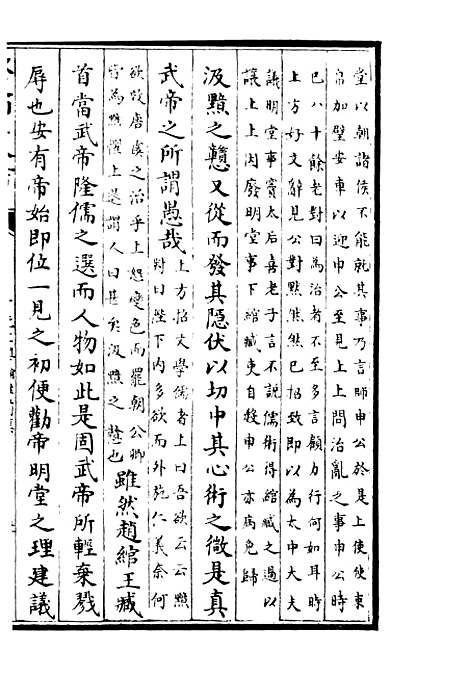 堂以朝諸侯不能就其事乃言師申公於是上使使束
帛加璧安車以迎申公至見上上問治亂之事申公時
已八十餘老對曰為治者不至多言顧力行何如耳時
上方好文辭見公對黙然然已招致即以為太中大夫
議明堂事竇太后喜老子言不說儒術得綰臧之過以
讓上上因廢明堂事下綰臧吏自殺申公亦病免歸
汲黯之戇又從而發其隱伏以切中其心術之微是真
武帝之所謂愚哉
上方招文學儒者上曰吾欲云云黯
對曰陛下内多欲而外施仁義奈何
欲效唐虞之治乎上怒變色而罷朝公卿
皆為黯懼上退謂人曰甚矣汲黯之戇也
雖然趙綰王臧
首當武帝隆儒之選而人物如此是固武帝所輕棄戮
辱也安有帝始即位一見之初便勸帝明堂之理建議